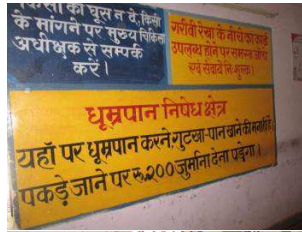 किसी को घूस न दें, किसी
के मांगने पर मुख्य चिकित्सा
अधीक्षक से सम्पर्क
करें।
गरीबी रेखा के नीचे का कार्ड
उपलब्ध होने पर समस्त जांच
एवं सेवायें निःशुल्क।
धूम्रपान निषेध क्षेत्र
यहाँ पर धूम्रपान करने गुटखा-पान खाने की मनाही है
पकड़े जाने पर रू.२०० जुर्माना देना पड़ेगा।